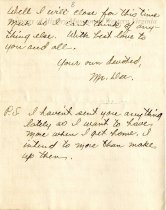 Well I will close for this time
as I can't think of any
thing else. With best love to
you and all.
Your own devoted,
P.S. I haven't sent you anything
lately as I want to have
more when I get home. I
intend to more than make
up then.